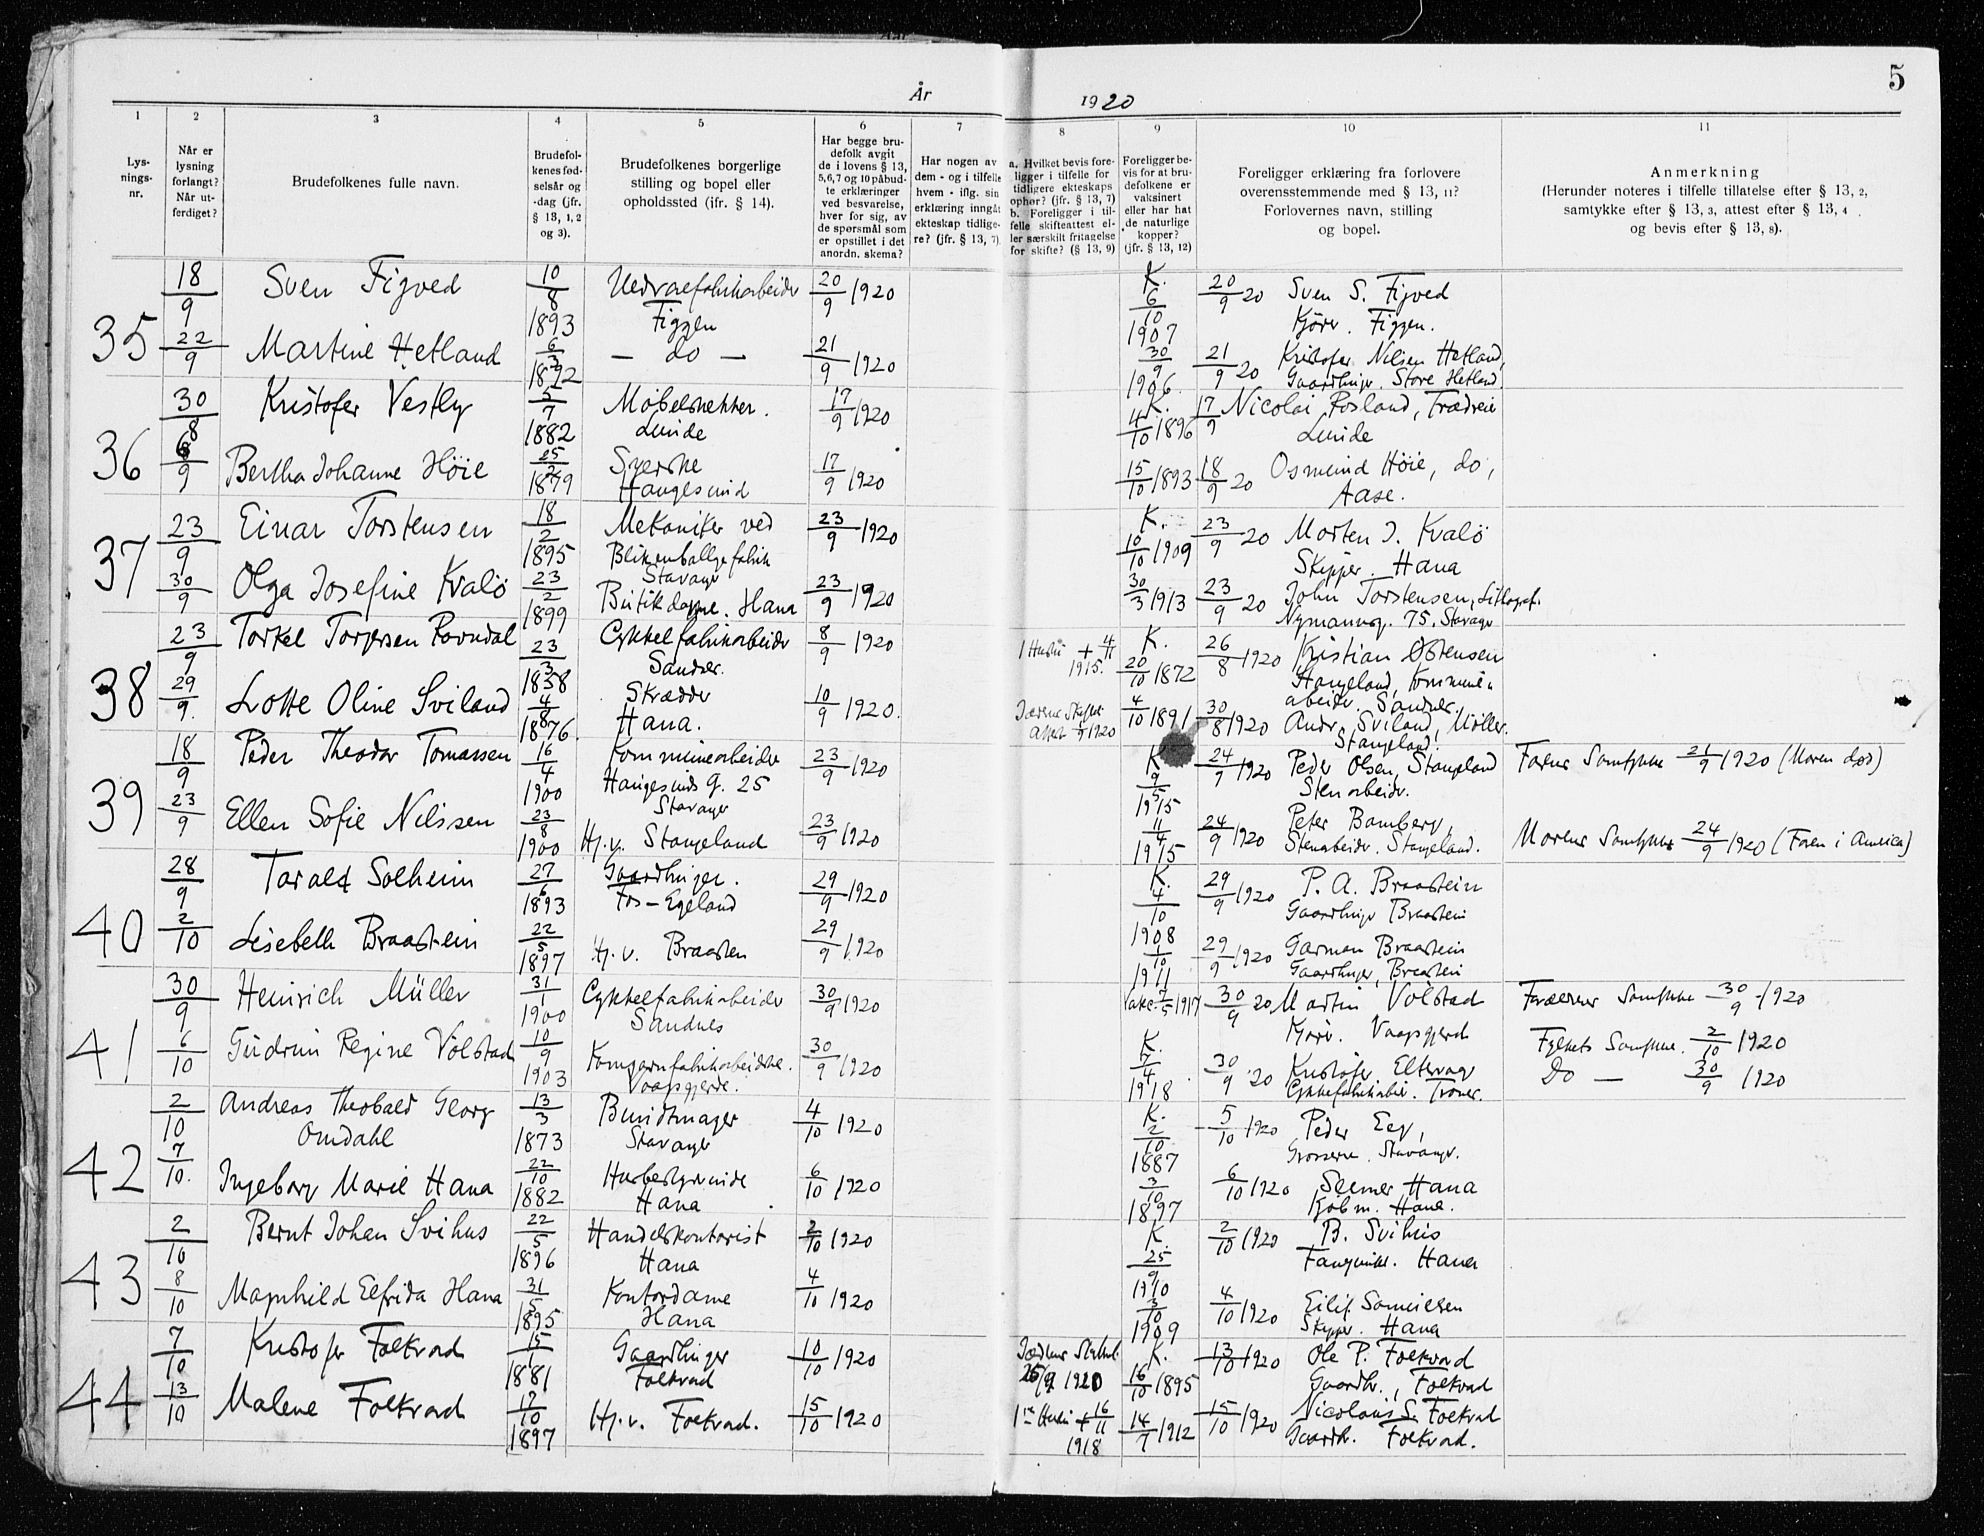 År 1920
5
1 2 3 4 5 6 7 8 9 10 11
Lys-
nings-
nr.
Når er
lysning
forlangt?
Når ut-
ferdiget?
Brudefolkenes fulle navn.
Brudefol-
kenes fød-
selsår og
-dag (jfr.
§ 13, 1, 2
og 3).
Brudefolkenes borgerlige
stilling og bopel eller
opholdssted (ifr. § 14).
Har begge bru-
defolk avgit
de i lovens § 13,
5,6,7 og 10 påbud-
te erklæringer
ved besvarelse,
hver for sig, av
de spørsmål som
er opstillet i det
anordn. skema?
Har nogen av
dem - og i tilfelle
hvem - iflg. sin
erklæring inngåt
ekteskap tidlige-
re? (jfr. § 13, 7)
a. Hvilket bevis fore-
ligger i tilfelle for
tidligere ekteskaps
ophør? (jfr. § 13, 7)
b. Foreligger i til-
felle skifteattest el-
ler særskilt fritagelse
for skifte? (§ 13, 9)
Foreligger be-
vis for at bru-
defolkene er
vaksinert
eller har hat
de naturlige
kopper?
(jfr. § 13, 12)
Foreligger erklæring fra forlovere
overensstemmende med § 13, 11?
Forlovernes navn, stilling
og bopel.
Anmerkning
(Herunder noteres i tilfelle tillatelse efter § 13, 2,
samtykke efter § 13, 3, attest efter § 13, 4
og bevis efter § 13, 8).
35
18/9 Sven Figved 10/8 1893 Figgen 20/9 1920 K. 6/10 1907 20/9 20 Sven S. Figved
Kjörer. Figgen.
22/9 Martine Hetland 6/3 1892 — do — 21/9 1920 30/9 1906. 21/9 20 Kristofer Nilsen Hetland,
Store Hetland.
36
30/8 Kristofer Vestly 5/7 1882 Møbelsnekker.
Lunde 17/9 1920 K. 4/10 1896 17/9 Nicolai Rosland, Trædreier
Lunde
6/9 Bertha Johanne Höie 25/2 1879 Syerske
Haugesund 17/9 1920 15/10 1893 18/9 20 Osmund Höie, do,
Aase.
37
23/9 Einar Torstensen 18/2 1895 Mekaniker ved
Stavanger 23/9 1920 K. 10/10 1909 23/9 20 Morten J. Kvalö
Skipper. Hana
30/9 Olga Josefine Kvalö 23/2 1899 Butikdame. Hana 23/9 1920 30/3 1913 23/9 20 John Torstensen, Litograf.
Nymannsg. 75. Stavanger
38
23/9 Torkel Torgersen Rovndal 23/3 1838 Cykkelfabrikarbeider
Sandnes. 8/9 1920 1 Hustru + 4/11 1915. K. 20/10 1872 26/8 1920 Kristian Østensen
Stangeland, kommune-
arbeider. Sandnes.
29/9. Lotte Oline Sviland 4/8 1876. Skrædder
Hana. 10/9 1920. 4/10 1891 30/8 1920 Andr. Sviland, Møller.
Stangeland.
39
18/9 Peder Theodor Tomassen 16/4 1900 Kommunearbeider
Haugesunds g. 25
Stavanger 23/9 1920 K. 9/5 1915 24/9 1920 Peder Olsen, Stangeland
Stenarbeider. Farens Samtykke 21/9 1920 (Moren død)
23/9 Ellen Sofie Nilssen 23/8 1900 Hj.v. Stangeland 23/9 1920 11/4 1915 24/9 1920 Peter Bamberg,
Stenarbeider. Stangeland. Morens Samtykke 24/9 1920 (Faren i America)
40
28/9 Tarald Solheim 27/6 1893 Gaardbruger.
Fos-Egeland 29/9 1920 K. 4/10 1908 29/9 1920 P. A. Braastein
Gaardbruger Braastein
2/10 Lisebeth Braastein 22/5 1897 Hj. v. Braasten 29/9 1920 1/10 1911 29/9 1920 Garman Braastein
Gaardbruger, Braastein
41
30/9 Heinrich Müller 31/1 1900 Cykkelfabrikarbeider
Sandnes 30/9 1920 7/5 1917 30/9 20 Martin Volstad
Kjörer. Vaagsgjerd Forældrenes Samtykke 30/9 1920
6/10 Gudrun Regine Volstad 10/9 1903 Kamgarnfabrikarbeiderske.
Vaagsgjerde. 30/9 1920 K. 7/4 1918 30/9 20 Kristofer Eltervag
Cykkelfabrikarbeider. Trones. Fylkets Samtykke. 2/10 1920
Do — 30/9 1920
42
2/10 Andreas Theobald Georg
Omdahl 13/3 1873 Bundtmager
Stavanger 4/10 1920 K. 2/10 1887 5/10 1920 Peder Eeg,
Grosserer. Stavanger.
7/10. Ingeborg Marie Hana 22/10 1882 Husbestyrerinde
Hana 6/10 1920 3/10 1897 6/10 1920 Hana
Kjøbm. Hana.
43
2/10 Bernt Johan Svihus 22/5 1896 Handelskontorist
Hana 2/10 1920 K. 25/9 1910 2/10 1920 B. Svihus
Hana
8/10 Magnhild Elfrida Hana 31/5 1895 Kontordame
Hana 4/10 1920 3/10 1909 4/10 1920 Eilif Samuelsen
Skipper. Hana
44
7/10 Kristofer Folkvord 15/1 1881 Gaardbruger
Folkvord 10/10 1920 25/9 1920 K. 16/10 1895 13/10 1920 Ole P. Folkvord
Gaardbr., Folkvord
13/10 Malene Folkvord 17/10 1897 Hj.v. Folkvord. 15/10 1920 1ste Hustru + 16/11 1918 14/7 1912 15/10 1920 Nicolaus S. Folkvord
Gaardbr. Folkvord.